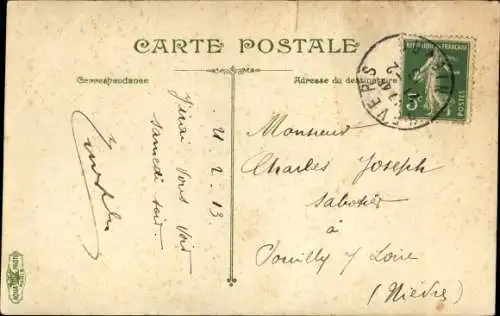 CARTE POSTALE
Correspondance
Adresse du destinataire
REPUBLIQUE FRANÇAISE
5c
POSTES
NEVERS
21-2-13
J'irai vous voir
samedi soir.
Monsieur
Charles Joseph
sabotier
à
Pouilly s/ Loire
(Nièvre)